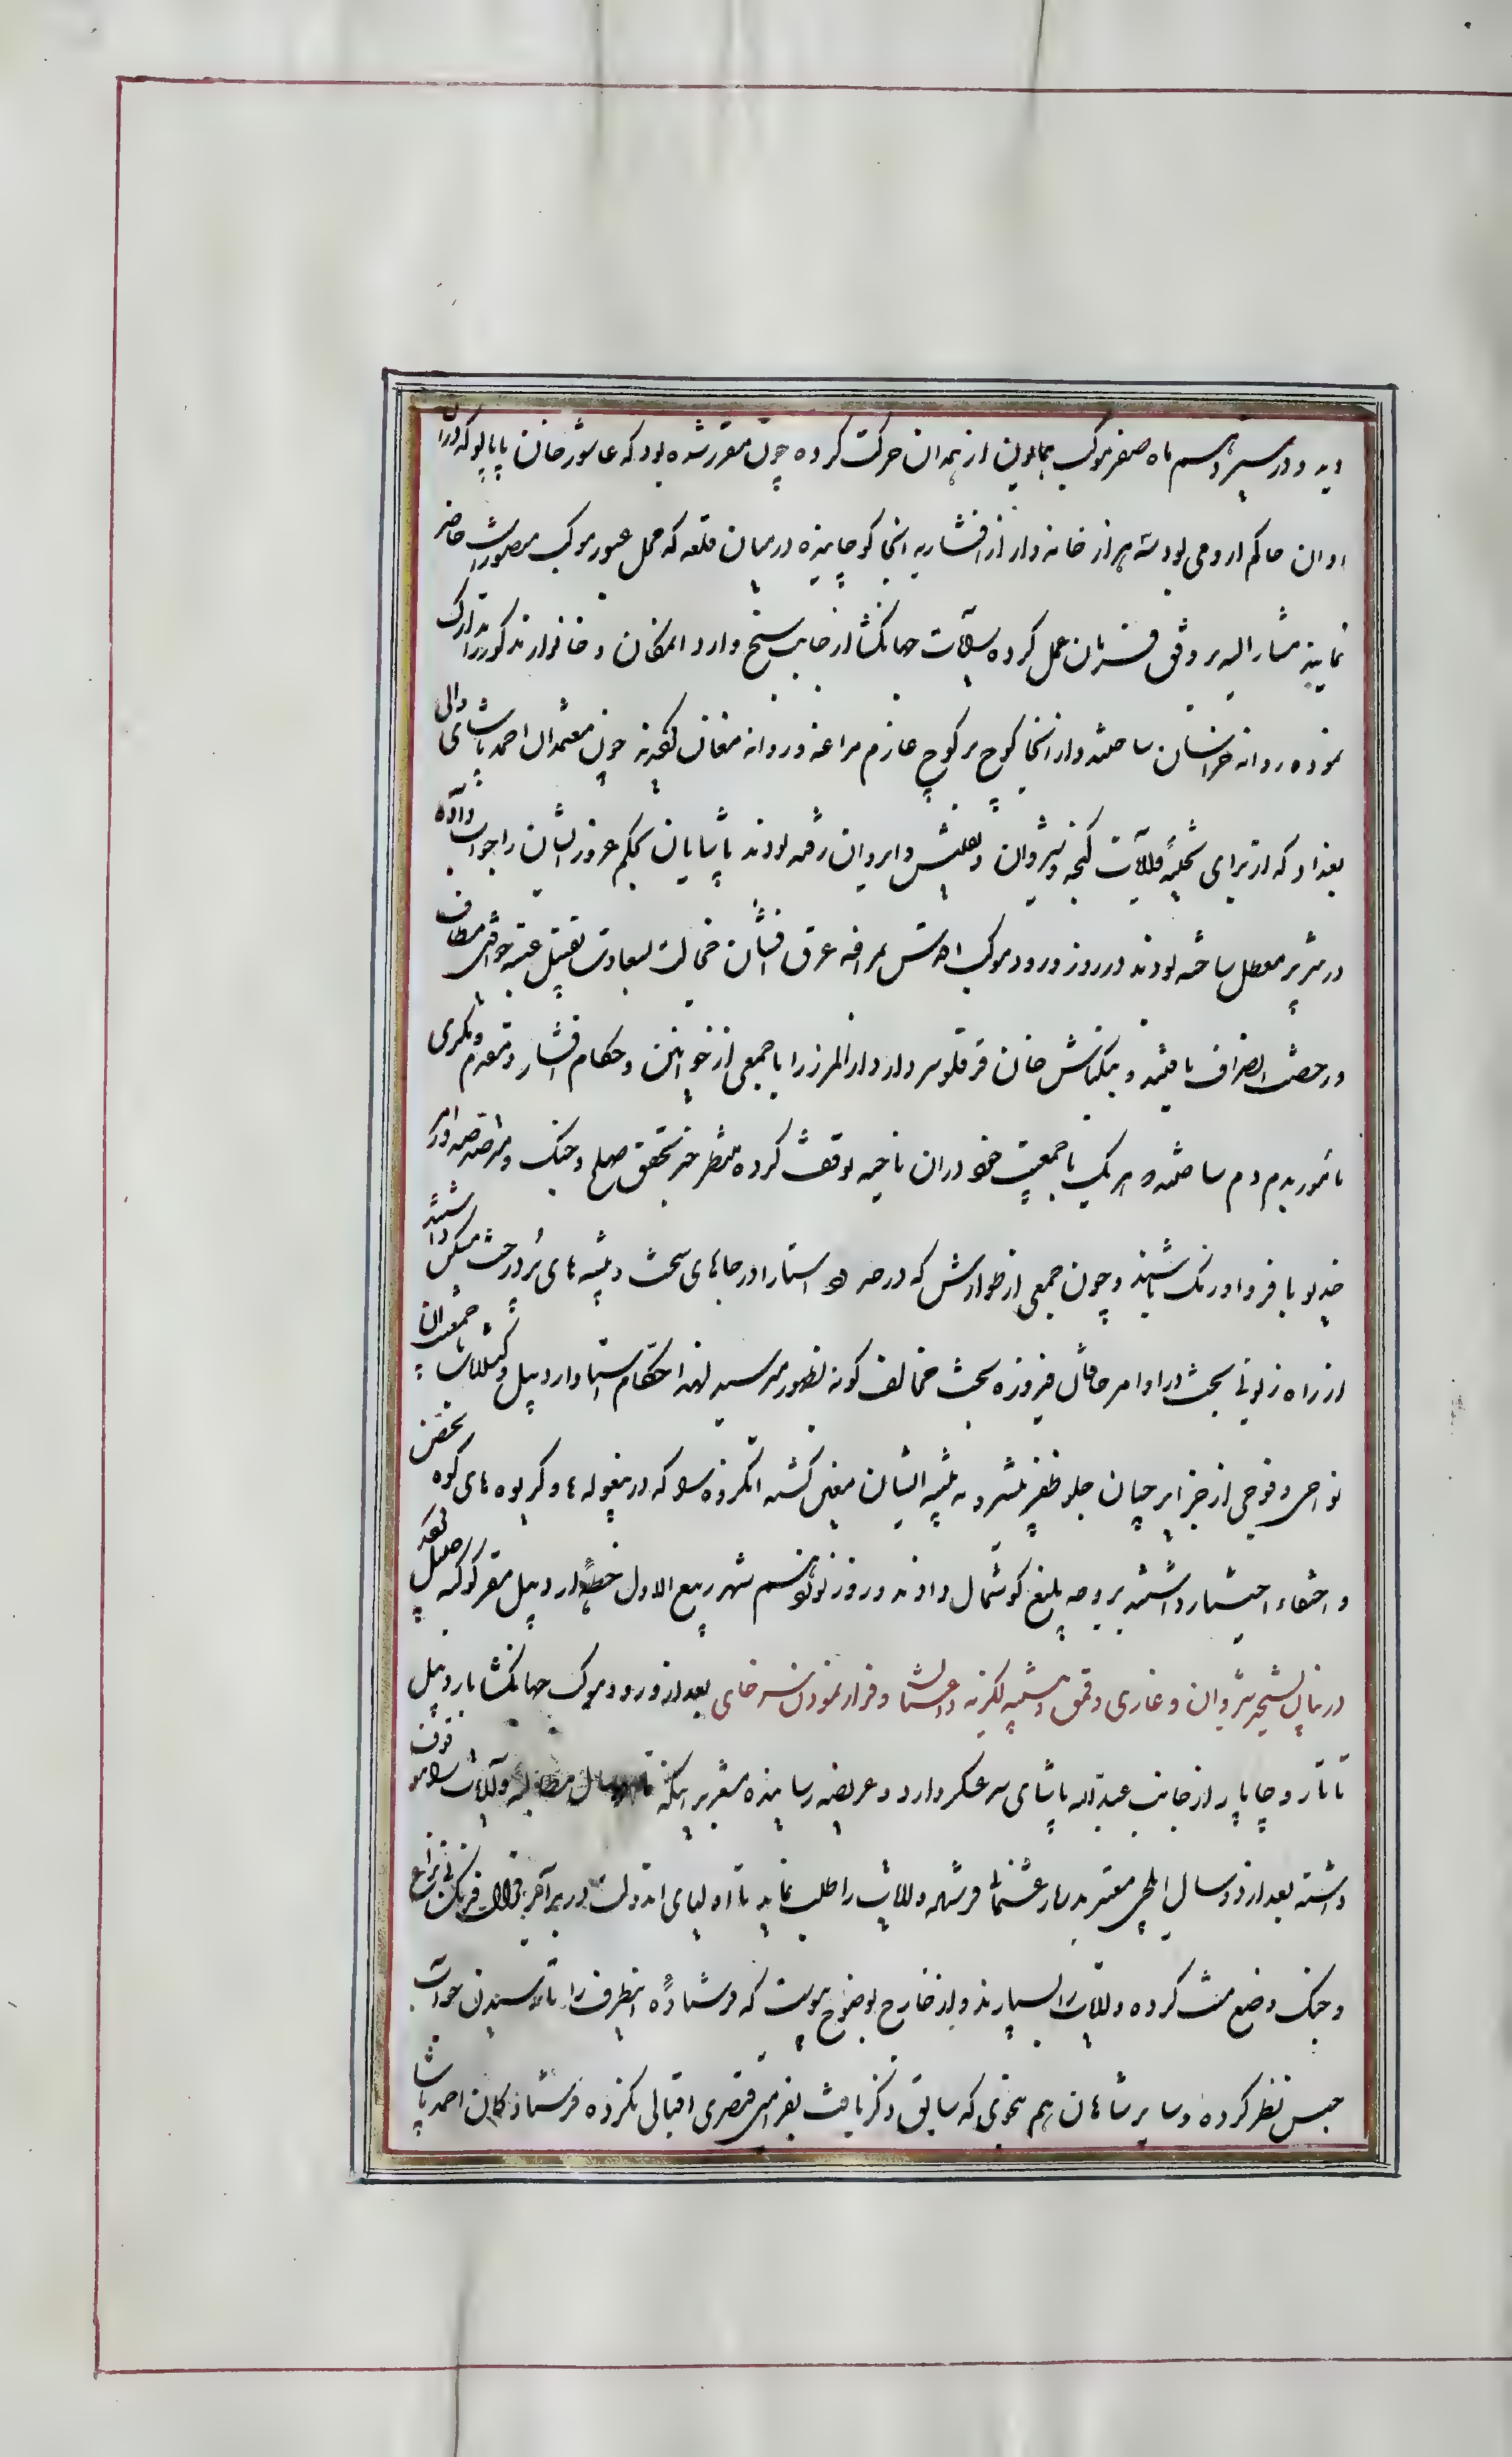 دید و در سیزدهم ماه صفر موکب همایون از همدان حرکت کرده چون مقرر شده بود که عاشور خان پاپالو که در آن
اوان حاکم ارومی بود سه هزار خانه وار از افشاریه آنجا کوچانیده در میان قلعه که محل عبور موکب منصور است حاضر
نماید مشار الیه بر وفق فرمان عمل کرده رایات جهانگشا از جانب سنخ وارد المکان و خانوار مذکور را تدارک
نموده روانه خراسان ساختند و از آنجا کوچ بر کوچ عازم مراغه و روانه مغان گردیدند چون معتمدان احمد پاشای والی
بغداد که از برای تخلیه ولایات گنجه و شیروان و تفلیس و ایروان رفته بودند پاشایان بحکم عزوز ایشان را جواب داده
در تبریز معطل ساخته بودند در روز ورود موکب اقدس بمراغه عرق افشان خجالت بسعادت تقبیل عتبه خواقین مطاف
و رخصت انصراف یافتند و بیکتاش خان قرقلو سردار دار المرز را با جمعی از خوانین و حکام افشار و مقدم و مکری
مامور بدم دم ساختند و هر یک با جمعیت خود در آن ناحیه توقف کرده منتظر خبر تحقق صلح و جنگ و مترصد صدور امر
خدیو با فر و اورنگ باشند و چون جمعی از طوالش که در حدود آستارا در جاهای سخت و بیشه های پر درخت مسکن داشتند
از راه زبونی بخت در اوامر خاقان فیروزه بخت مخالف گونه بظهور میرسید لهذا حکام آستارا و اردبیل و گیلانات با جمعیت آن
نواحی و فوجی از جزایرچیان جلو ظفر پیشرو به تنبیه ایشان معین گشته آنگروه را که در بیغوله ها و گریوه های کوه تحصن
و اختفاء اختیار داشتند بر وجه بلیغ گوشمال دادند و روز نوزدهم شهر ربیع الاول خطه اردبیل مقر کوکبه
در بیان تسخیر شیروان و غازی و قموق و تنبیه لکزیه داغستان و فرار نمودن سرخای بعد از ورود موکب جهانگشا باردبیل
تاتار و چاپار از جانب عبد الله پاشای سرعسکر وارد و عریضه رسانیده مشعر بر اینکه تا دو سال مطالبه ولایات را موقوف
داشته بعد از دو سال ایلچی معتبر بدربار عثمانی فرستاده ولایات را طلب نماید تا اولیای آندولت در برابر فرنگ بی نزاع
و جنگ وضع منت کرده ولایات را بسپارند و از خارج بوضوح پیوست که فرستاده اینطرف را تا رسیدن جواب
حبس نظر کرده و سایر پاشاهان هم بنحوی که سابق ذکر یافت بفرامین قیصری اقبالی نکرده فرستادگان احمد پاشا